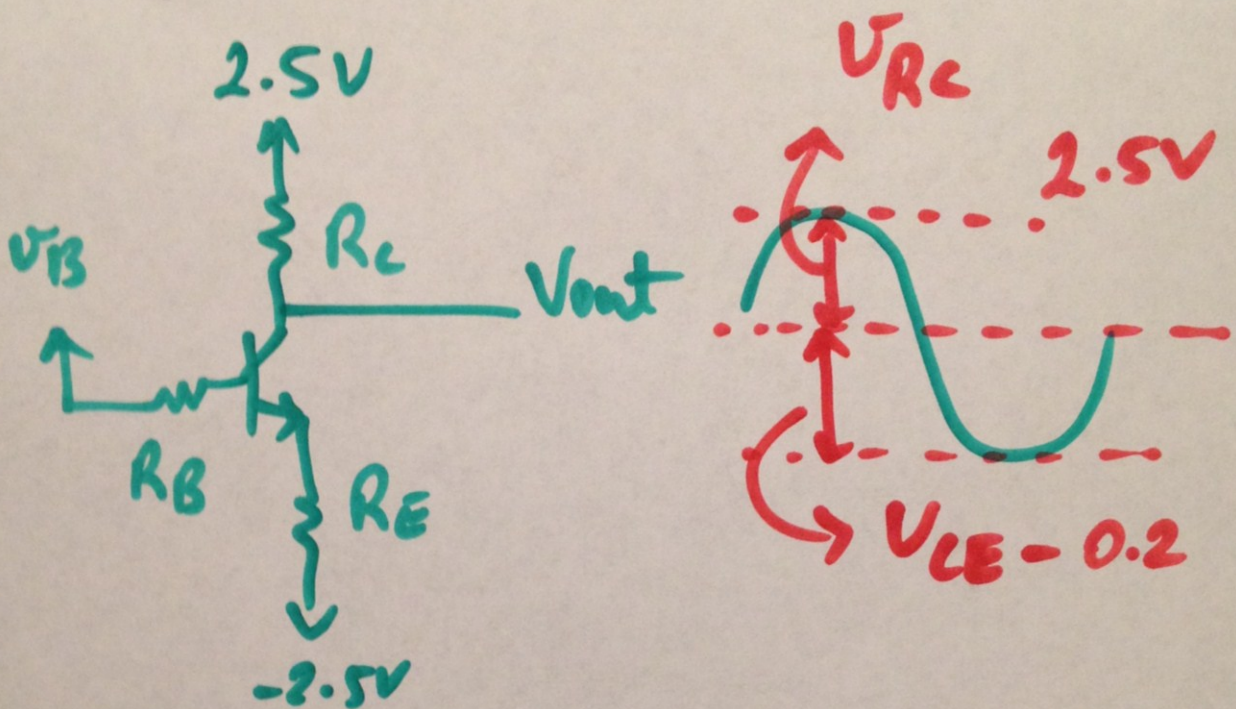 2.5V
RC
VB
Vout
RB
RE
-2.5V
VRC
2.5V
VCE - 0.2